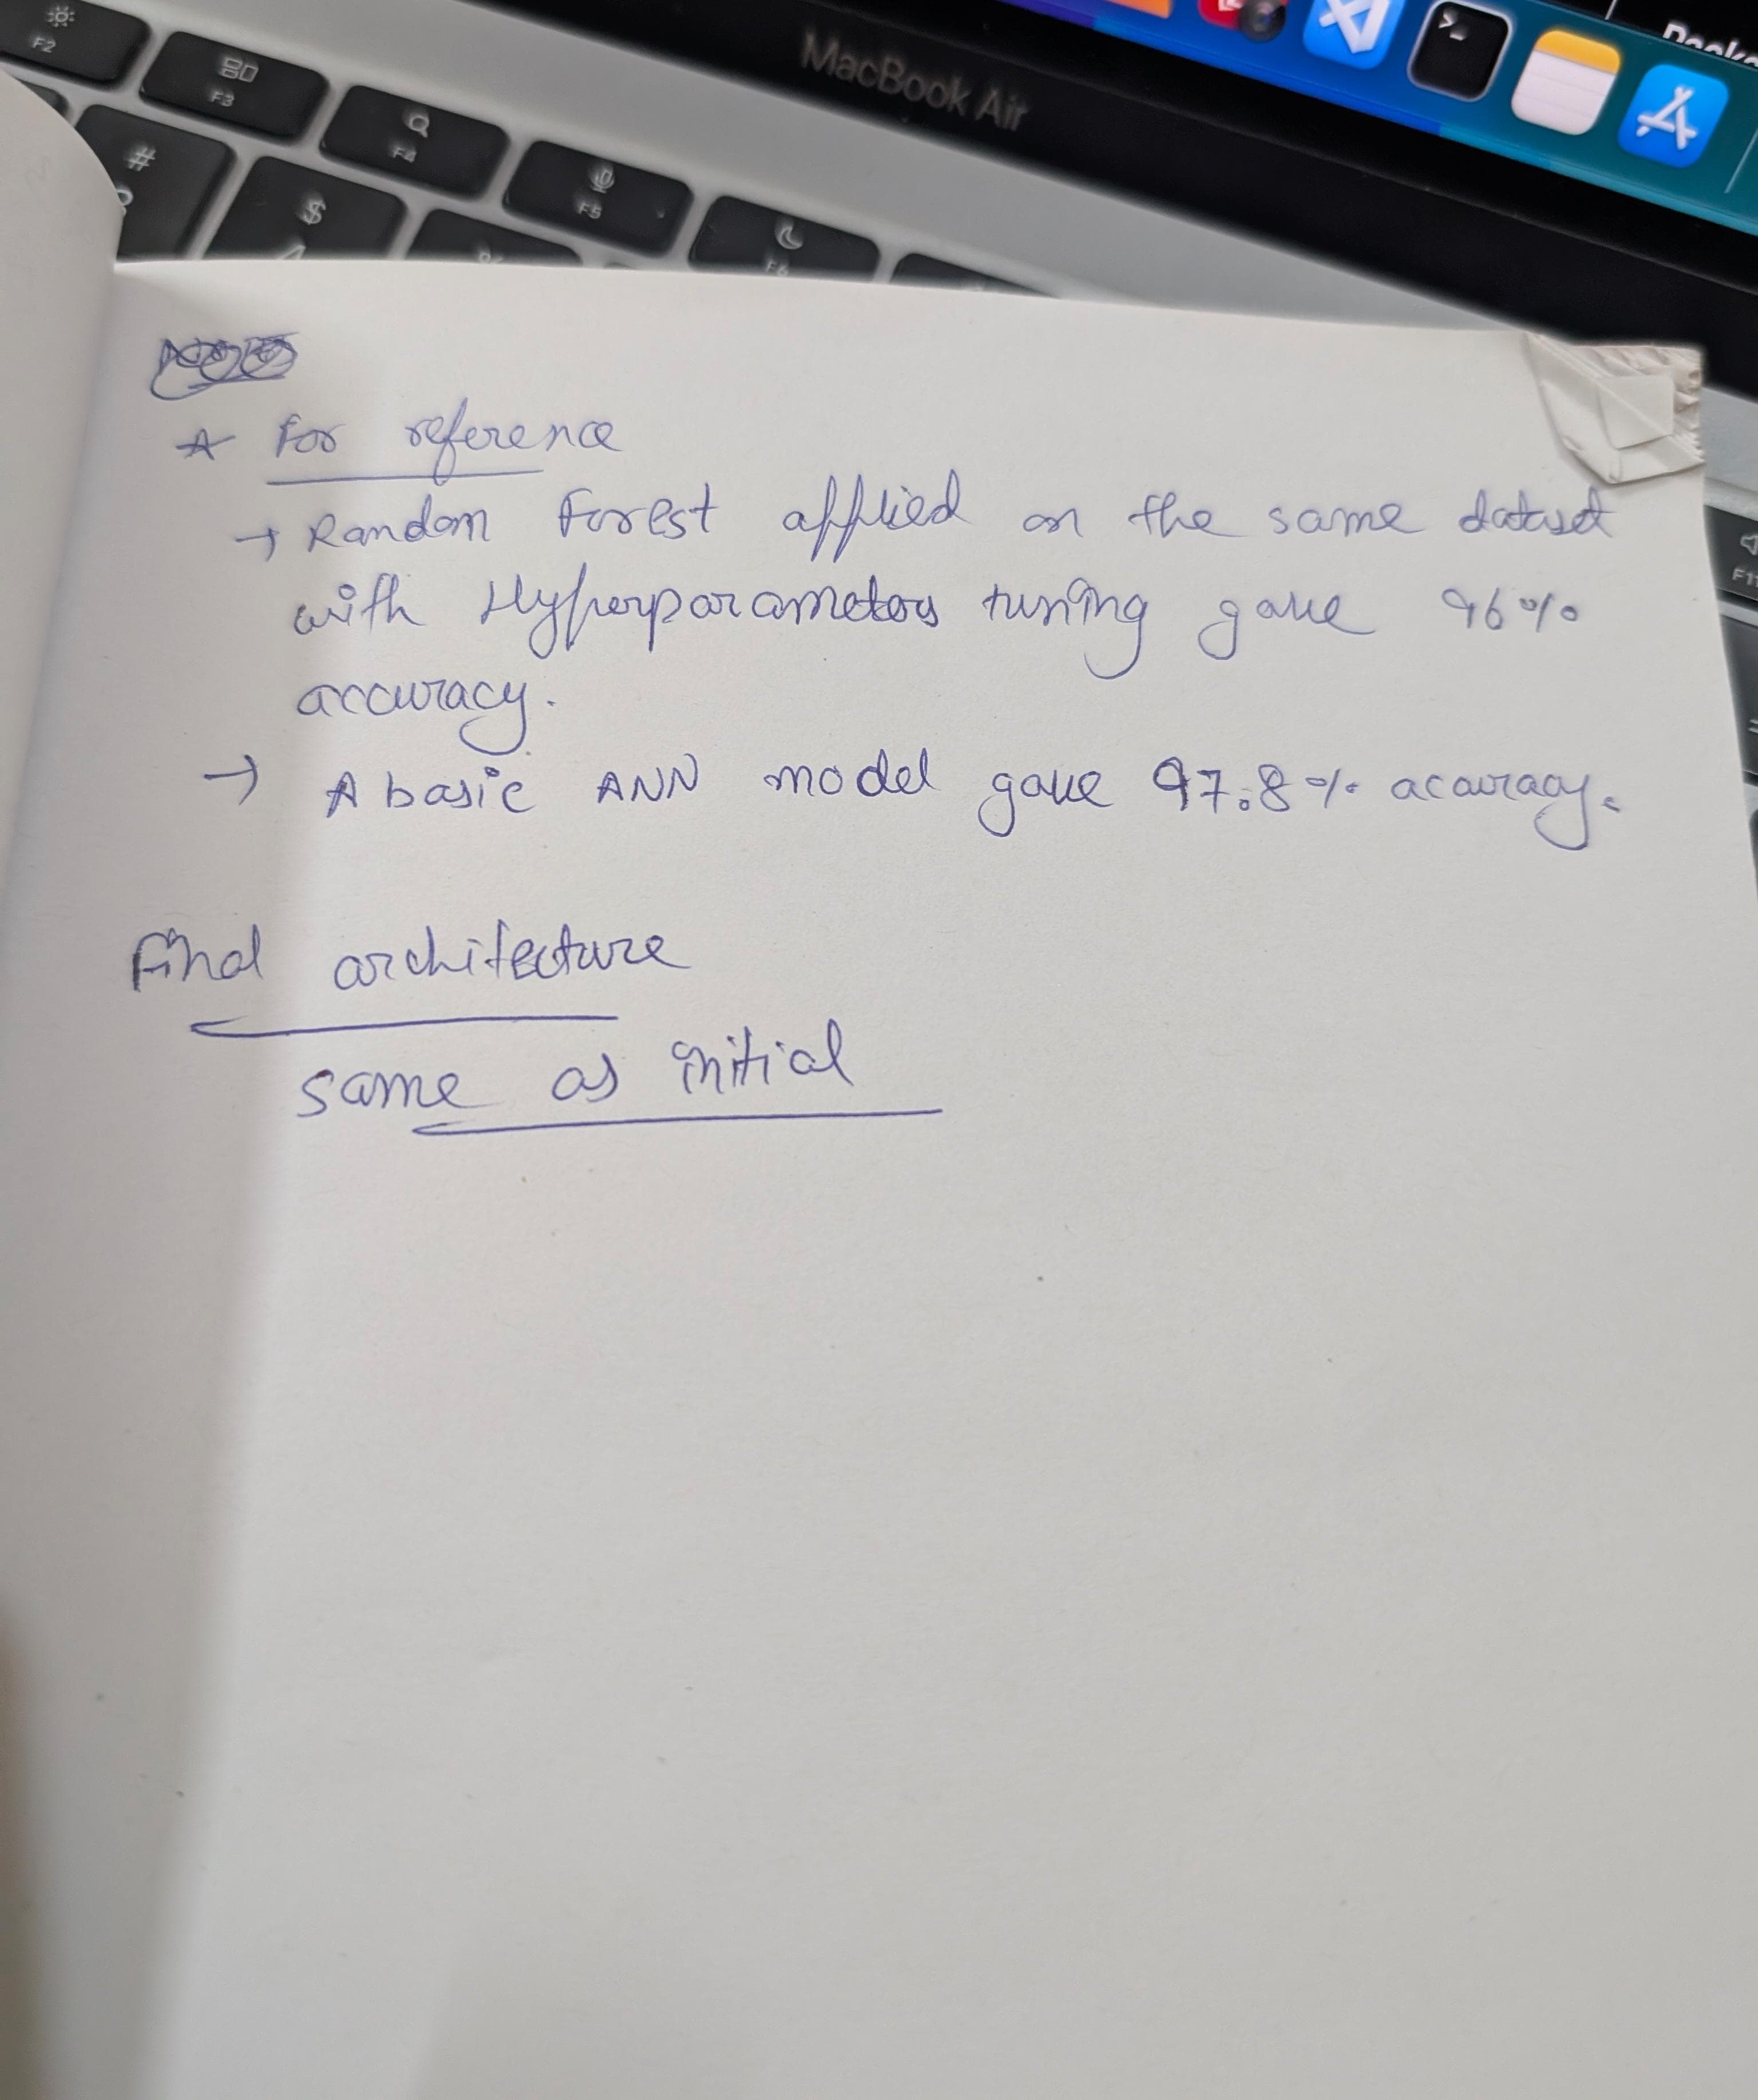 F2
F3
F4
F5
F6
#
$
MacBook Air
>_
F11
☆ For reference
→ Random Forest applied on the same dataset
with Hyperparameters tuning gave 96%
accuracy.
→ A basic ANN model gave 97.8% acauracy.
Final architecture
same as initial